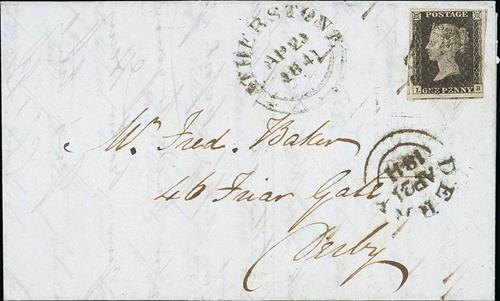 ATHERSTONE
AP 21
1841
POSTAGE
ONE PENNY
Mr. Fred. Baker
46 Friar Gate
Derby
DERBY
AP 21
1841